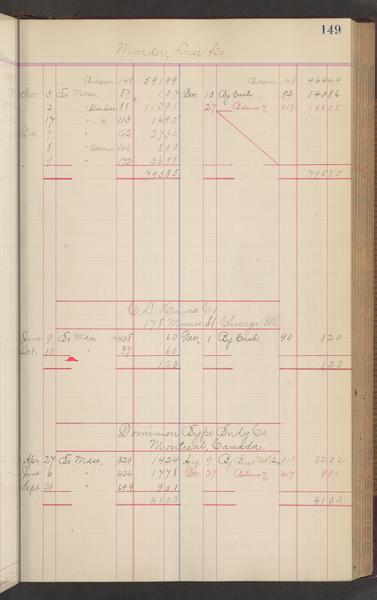 149
Marder, Luse & Co.
148 59199 148 46444
Nov. 3 To Mdse, 87 137 Dec. 13 By Cash 93 14086
2 " 88 11391 27 Balance 417 19055
17 " " 113 1695
Dec. 7 " 162 2735
8 " 166
9 " 172 3688
79585 79585
Co.
178 Monroe St. Chicago Ill.
June 9 To Mdse. 438 60 Dec. 1 By Cash 90 120
Oct. 15 " 37 60
120 120
Dominion Type Fndg Co.
Montreal, Canada.
Apr. 27 To Mdse, 320 1424 Aug. 9 By 2202
June 6 " 426 1778 Dec. 27 Balance 417 901
Sept. 21 " 699 901
4103 4103